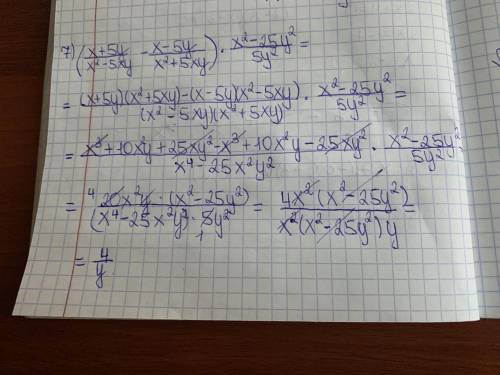 7) ( (x+5y)/(x²-5xy) - (x-5y)/(x²+5xy) ) · (x²-25y²)/(5y²) =
= ((x+5y)(x²+5xy)-(x-5y)(x²-5xy))/((x²-5xy)(x²+5xy)) · (x²-25y²)/(5y²) =
= (x³+10x²y+25xy²-x³+10x²y-25xy²)/(x⁴-25x²y²) · (x²-25y²)/(5y²)
= (4 20x²y · (x²-25y²))/((x⁴-25x²y²) · 5y² 1) = (4x²(x²-25y²))/(x²(x²-25y²)y) =
= 4/y.